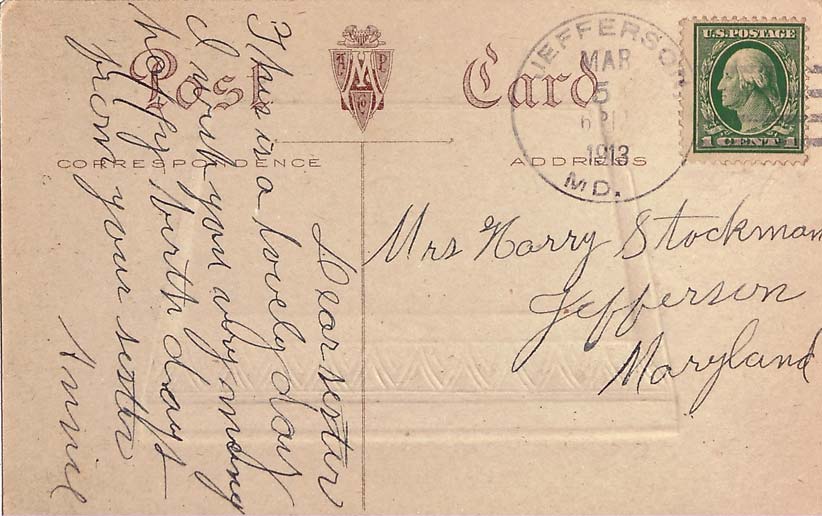 Post Card
A M P Co
CORRESPONDENCE
ADDRESS
JEFFERSON
MAR
5
1913
MD.
U.S. POSTAGE
1 CENT 1
Mrs Harry Stockman
Jefferson
Maryland
Dear sester
This is a lovely day
I wish you very many
happy birth days
from your sester
Annie